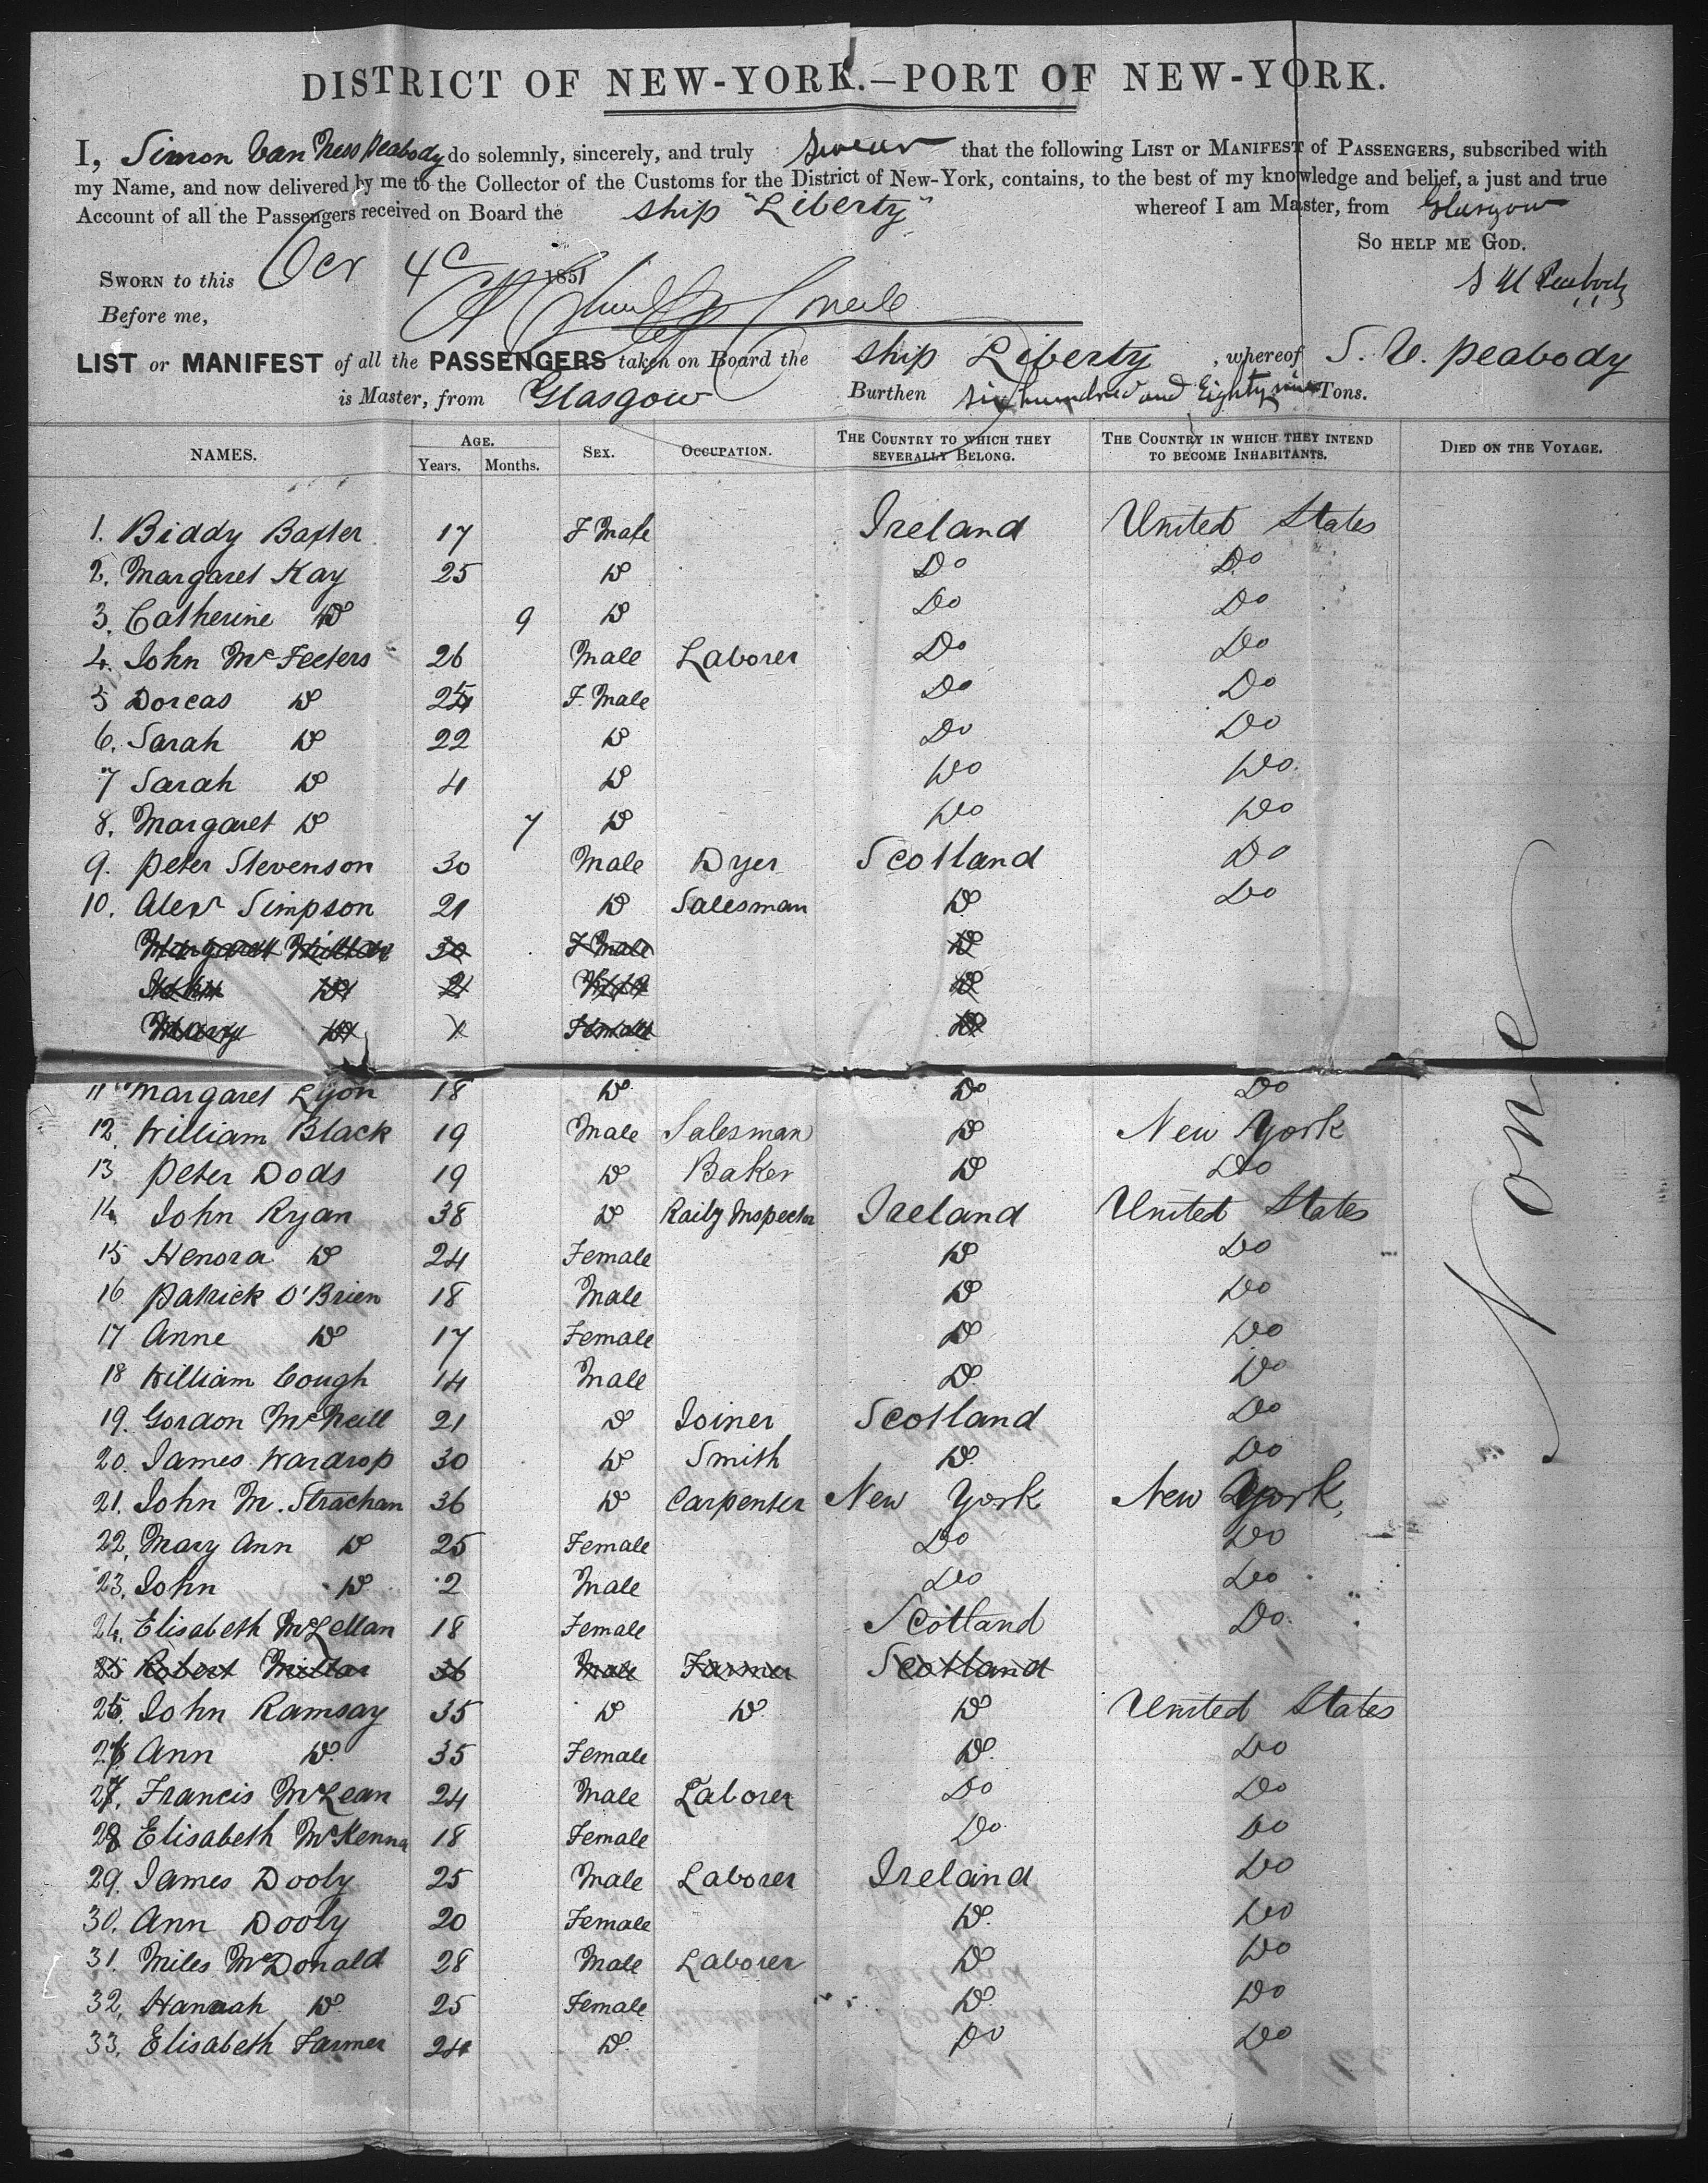 DISTRICT OF NEW-YORK.—PORT OF NEW-YORK.
I, Simon Van Ness Peabody do solemnly, sincerely, and truly swear that the following LIST OR MANIFEST of PASSENGERS, subscribed with
my Name, and now delivered by me to the Collector of the Customs for the District of New-York, contains, to the best of my knowledge and belief, a just and true
Account of all the Passengers received on Board the ship "Liberty" whereof I am Master, from Glasgow
SO HELP ME GOD.
SWORN to this Oct 4 1851 S V Peabody
Before me,
LIST or MANIFEST of all the PASSENGERS taken on Board the ship Liberty, whereof S. V. Peabody
is Master, from Glasgow Burthen six hundred and Eighty nine Tons.
NAMES. AGE. Years. Months. SEX. OCCUPATION. THE COUNTRY TO WHICH THEY SEVERALLY BELONG. THE COUNTRY IN WHICH THEY INTEND TO BECOME INHABITANTS. DIED ON THE VOYAGE.
1. Biddy Baxter 17 F Male Ireland United States
2. Margaret Kay 25 Do Do Do
3. Catherine Do 9 Do Do Do
4. John McFeeters 26 Male Laborer Do Do
5 Dorcas Do 24 F. Male Do Do
6. Sarah Do 22 Do Do Do
7 Sarah Do 4 Do Do Do
8. Margaret Do 7 Do Do Do
9. Peter Stevenson 30 Male Dyer Scotland Do
10. Alexr Simpson 21 Do Salesman Do Do
Margaret Millar 30 F Male Do
John Do 2 Male Do
Mary Do 1 Female Do
11 Margaret Lyon 18 Do Do Do
12. William Black 19 Male Salesman Do New York
13 Peter Dods 19 Do Baker Do Do
14 John Ryan 38 Do Raily Inspector Ireland United States
15 Henora Do 24 Female Do Do
16 Patrick O'Brien 18 Male Do Do
17 Anne Do 17 Female Do Do
18 William Cough 14 Male Do Do
19. Gordon McNeill 21 Do Joiner Scotland Do
20. James Wardrop 30 Do Smith Do Do
21. John M. Strachan 36 Do Carpenter New York New York,
22. Mary Ann Do 25 Female Do Do
23. John Do 2 Male Do Do
24. Elisabeth McLellan 18 Female Scotland Do
25 Robert Millar 36 Male Farmer Scotland
25. John Ramsay 35 Do Do Do United States
26 Ann Do 35 Female Do Do
27. Francis McLean 24 Male Laborer Do Do
28 Elisabeth McKenna 18 Female Do Do
29. James Dooly 25 Male Laborer Ireland Do
30. Ann Dooly 20 Female Do Do
31. Miles McDonald 28 Male Laborer Do Do
32. Hannah Do 25 Female Do Do
33. Elisabeth Farmer 24 Do Do Do
None